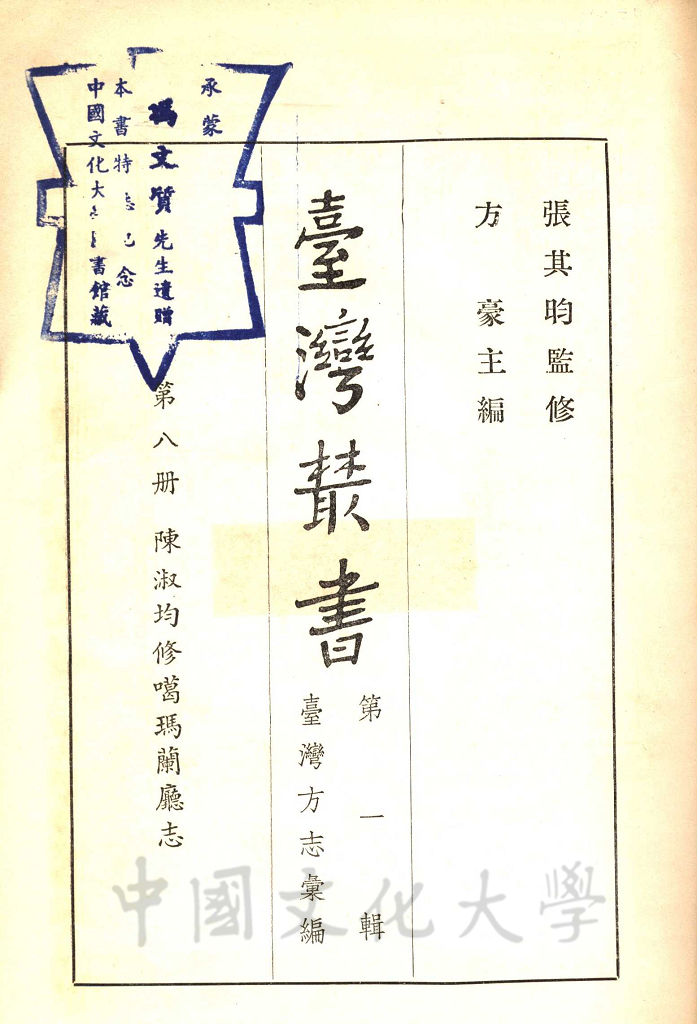 張其昀監修
方豪主編
臺灣叢書
第一輯
臺灣方志彙編
第八册 陳淑均修噶瑪蘭廳志
承蒙
馮文質先生遺贈
本書特誌紀念
中國文化大學圖書館藏
中國文化大學